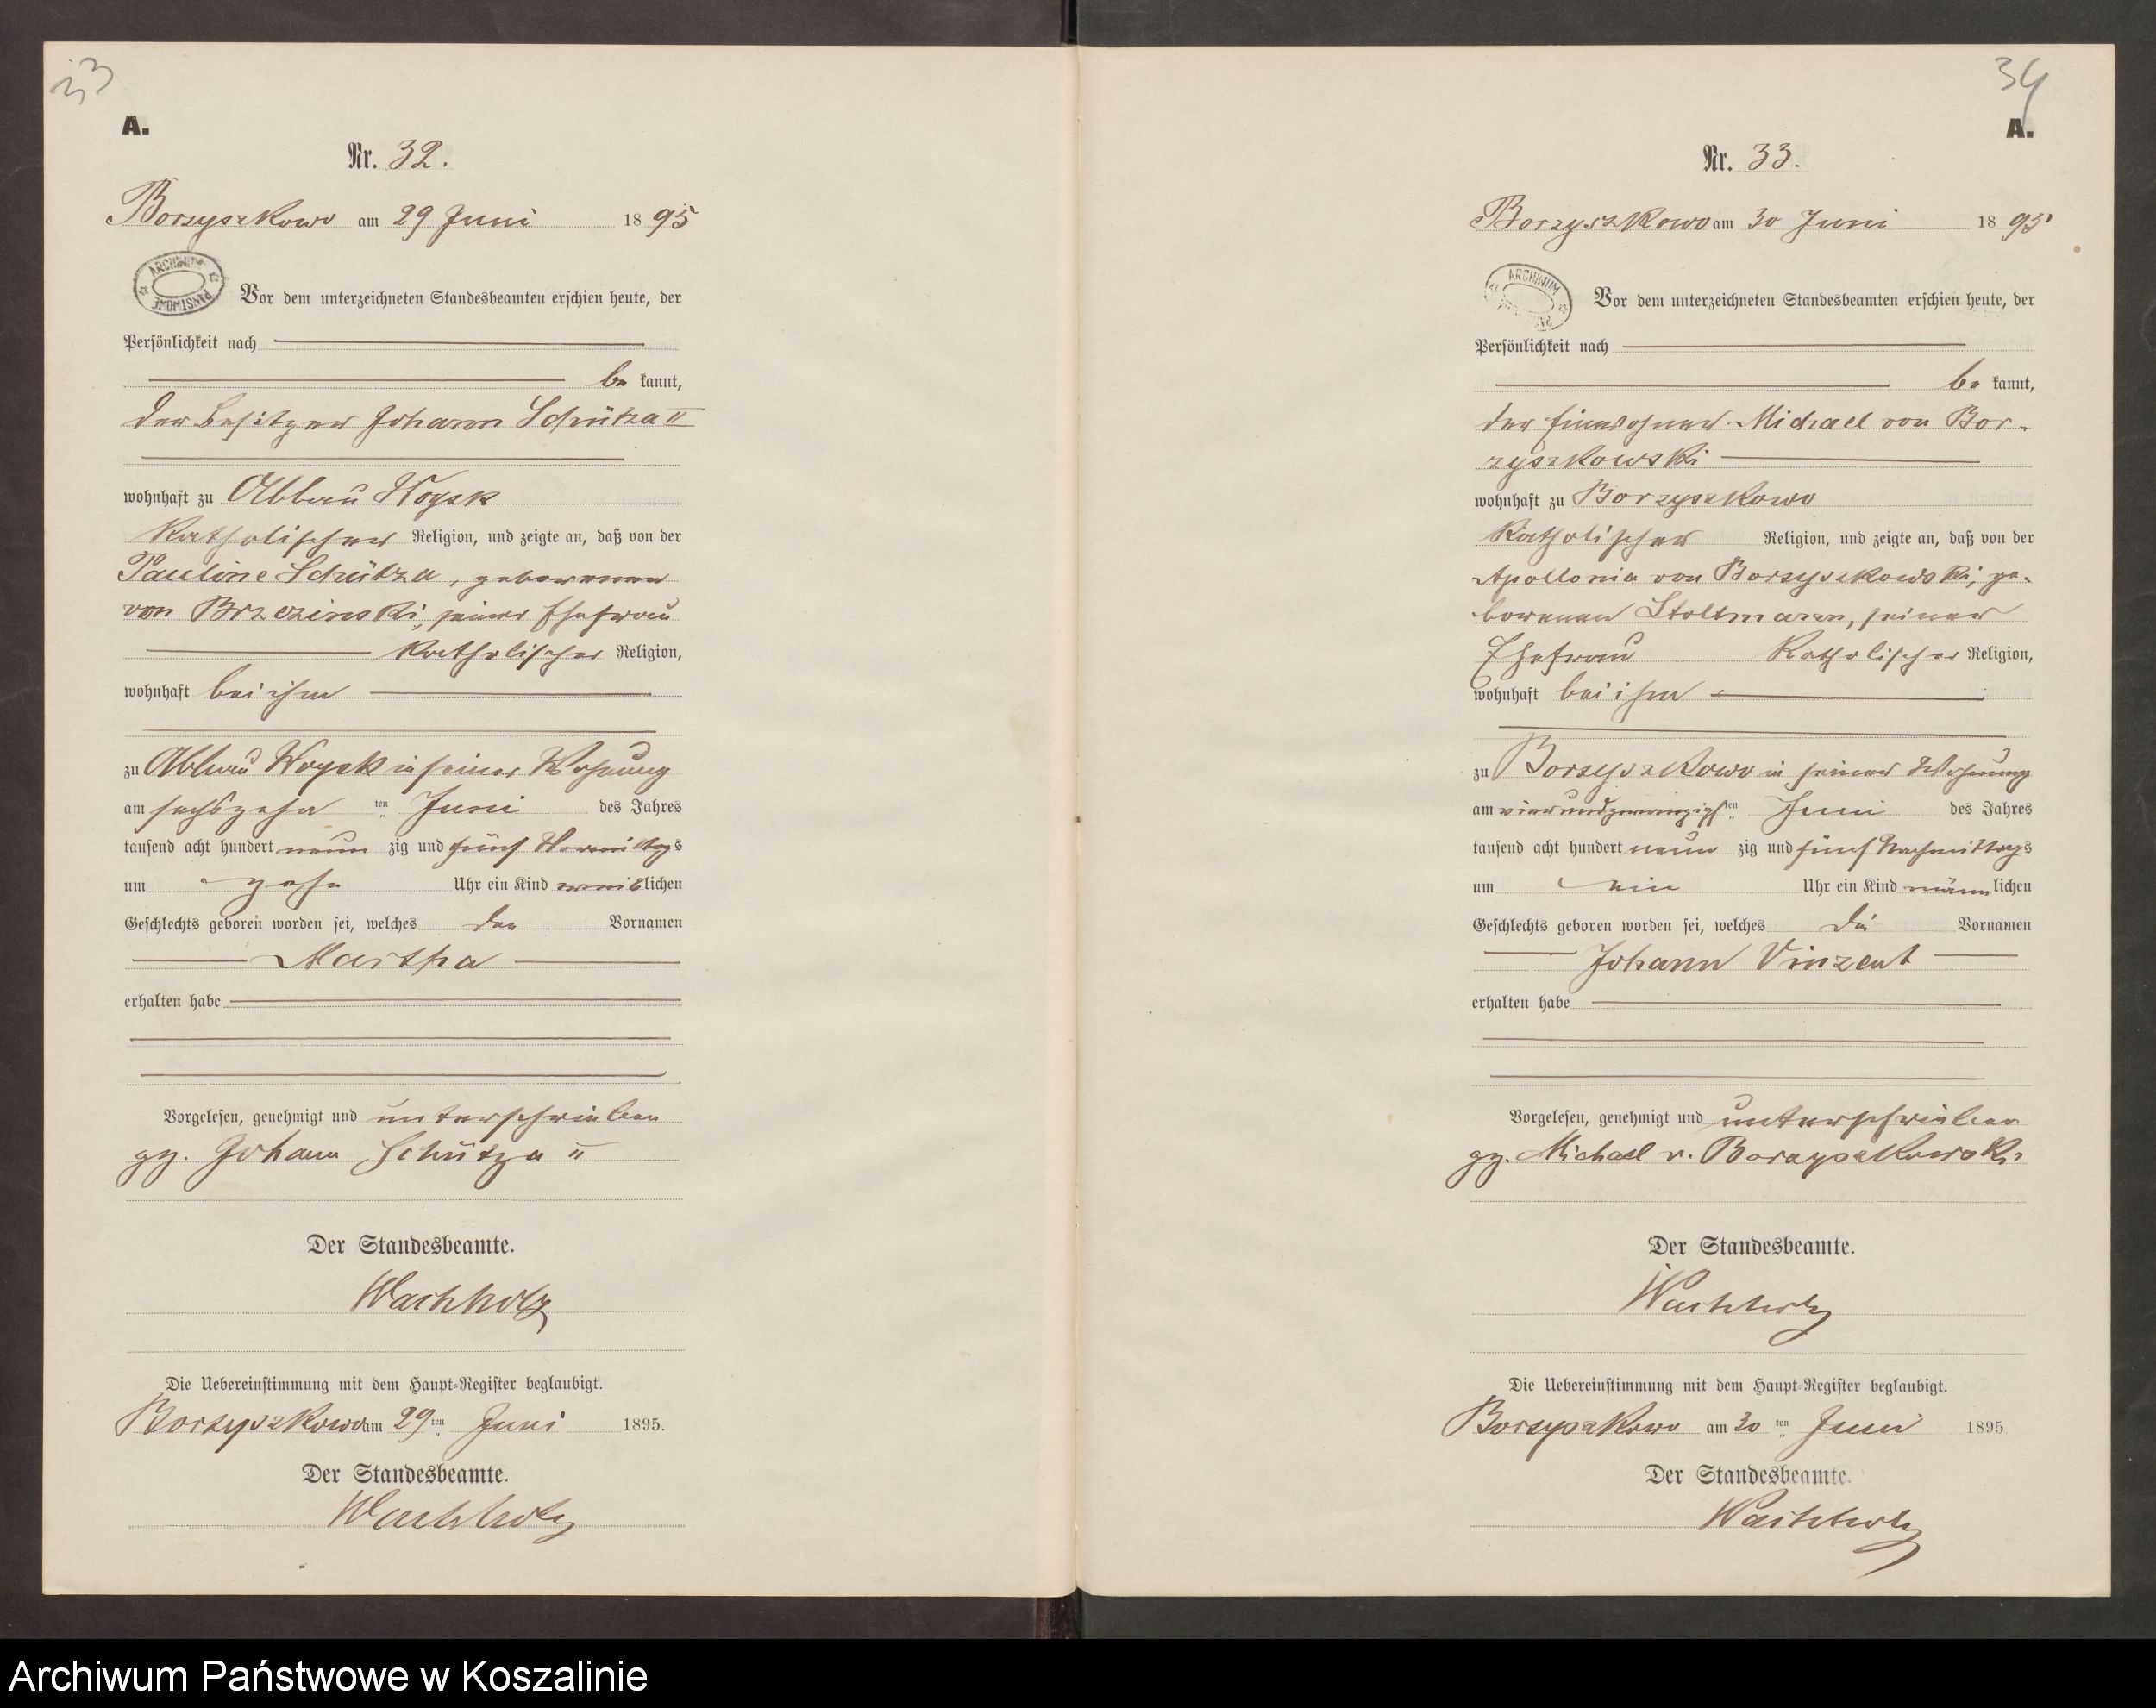 33
A.
Nr. 32.
Borzyszkowo am 29 Juni 1895
ARCHIWUM PAŃSTWOWE
Vor dem unterzeichneten Standesbeamten erschien heute, der
Persönlichkeit nach
be kannt,
der Besitzer Johann Schütza II
wohnhaft zu Abbau Woysk
katholischer Religion, und zeigte an, daß von der
Pauline Schütza, geborenen
von Brzezinski, seiner Ehefrau
katholischer Religion,
wohnhaft bei ihm
zu Abbau Woysk in seiner Wohnung
am sechszehn ten Juni des Jahres
tausend acht hundert neun zig und fünf Vormittags
um zehn Uhr ein Kind weiblichen
Geschlechts geboren worden sei, welches den Vornamen
Martha
erhalten habe
Vorgelesen, genehmigt und unterschrieben
gz. Johann Schütza II
Der Standesbeamte.
Wachholz
Die Uebereinstimmung mit dem Haupt-Register beglaubigt.
Borzyszkowo am 29 ten Juni 1895.
Der Standesbeamte.
Wachholz
34
A.
Nr. 33.
Borzyszkowo am 30 Juni 1895
ARCHIWUM
Vor dem unterzeichneten Standesbeamten erschien heute, der
Persönlichkeit nach
be kannt,
der Einwohner Michael von Bor-
zyszkowski
wohnhaft zu Borzyszkowo
katholischer Religion, und zeigte an, daß von der
Apollonia von Borzyszkowski, ge-
borenen Stoltmann, seiner
Ehefrau katholischer Religion,
wohnhaft bei ihm
zu Borzyszkowo in seiner Wohnung
am vierundzwanzigsten Juni des Jahres
tausend acht hundert neun zig und fünf Nachmittags
um ein Uhr ein Kind männlichen
Geschlechts geboren worden sei, welches die Vornamen
Johann Vinzent
erhalten habe
Vorgelesen, genehmigt und unterschrieben
gz. Michael v. Borzyszkowski
Der Standesbeamte.
Wachholz
Die Uebereinstimmung mit dem Haupt-Register beglaubigt.
Borzyszkowo am 30 ten Juni 1895
Der Standesbeamte.
Wachholz
Archiwum Państwowe w Koszalinie